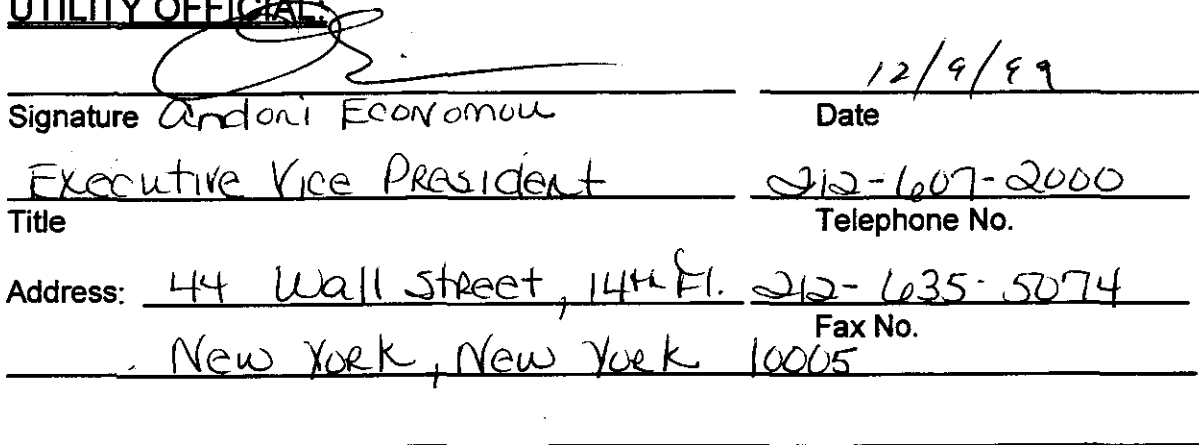 UTILITY OFFICIAL:
12/9/99
Signature Andoni Economou Date
Executive Vice President 212-607-2000
Title Telephone No.
Address: 44 Wall Street, 14th Fl. 212-635-5074
Fax No.
New York, New York 10005